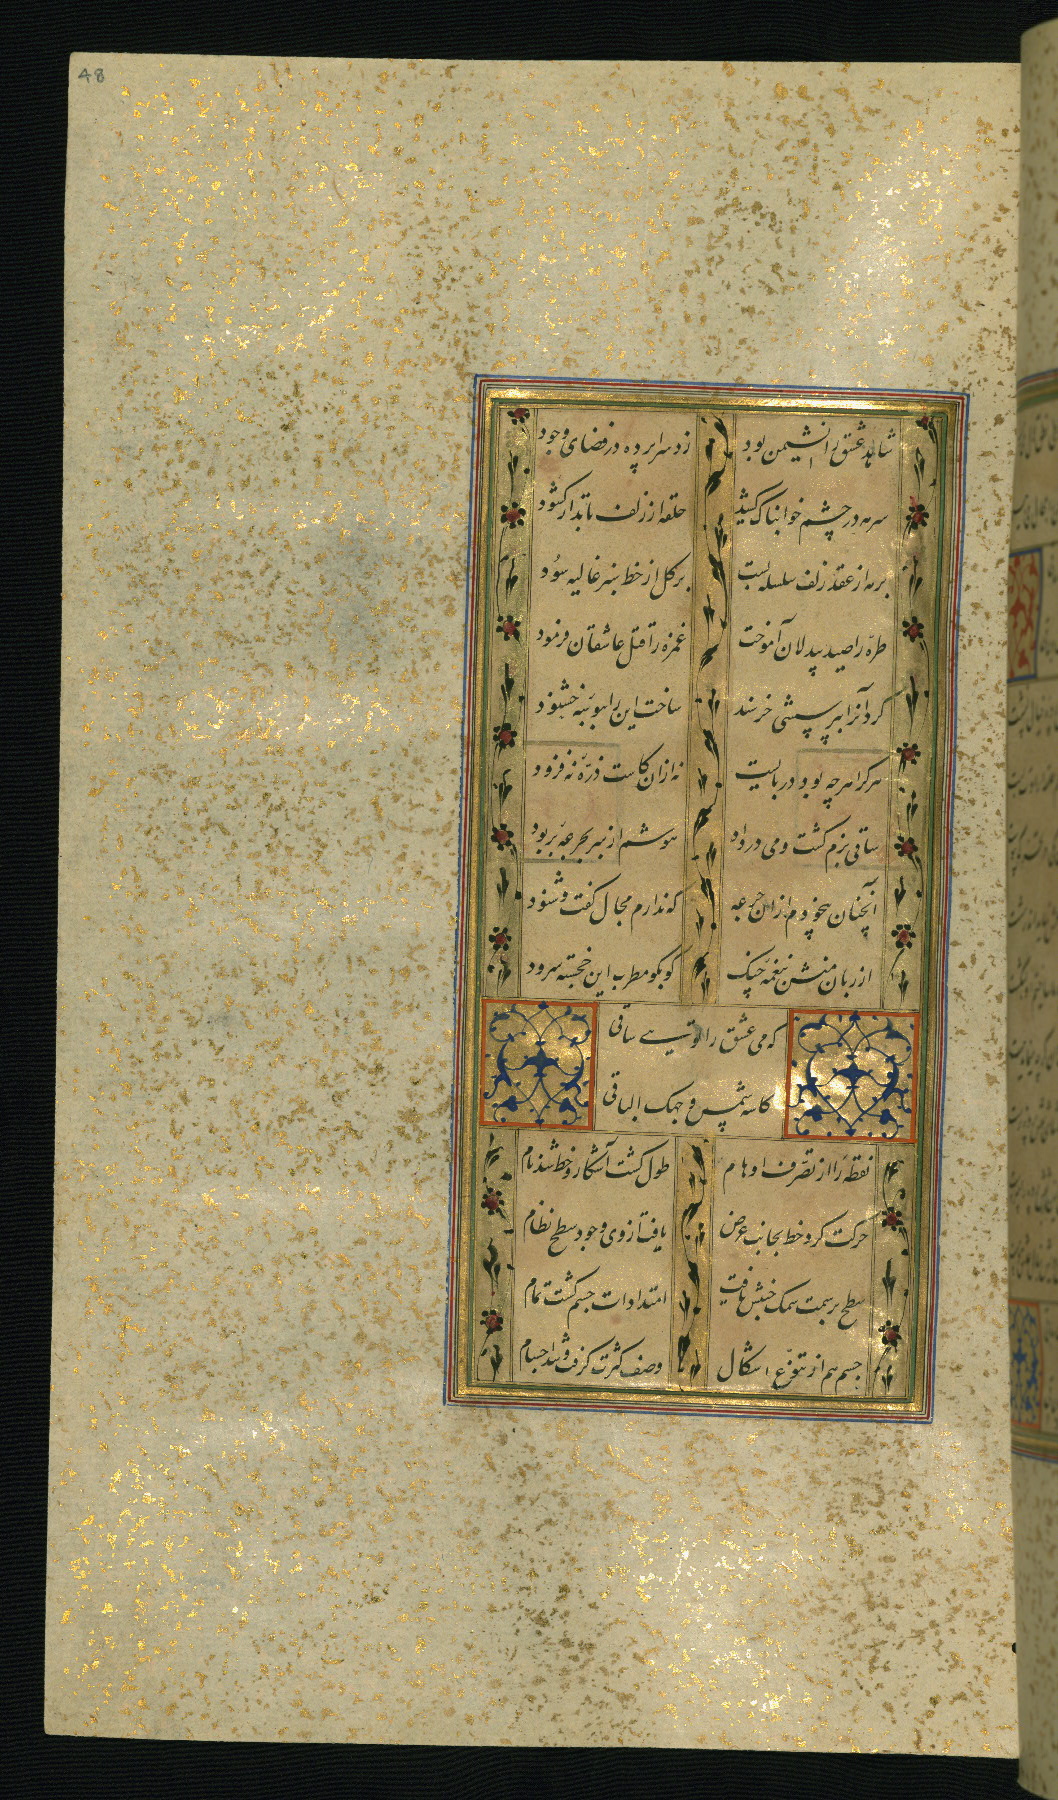 48
شاهد عشق را نشیمن بود زد سراپرده در فضای وجود
سرمه در چشم خوابناک کشید حلقه از زلف تابدار کشود
بر مه از عقد زلف سلسله بست بر کل از خط سبز غالیه سود
طره را صید بیدلان آموخت غمزه را قتل عاشقان فرمود
کرد آنرا بپرسشی خرسند ساخت این را ببوسۀ خشنود
هر کرا هر چه بود دربایست نه ازان کاست ذرّه نه فزود
ساقی بزم کشت و می در داد هوشم از سر بجرعۀ بربود
آنچنان بیخودم ازان جرعه که ندارم مجال کفت و شنود
از زبان منش بنغمۀ چنک کو بکو مطرب این خجسته سرود
که می عشق را توئی ساقی
کاسه شمس وجهک الباقی
نقطه را از تصرّف اوهام طول کشت آشکار و خط شد نام
حرکت کرد خط بجانب عرض یافت از وی وجود سطح نظام
سطح بر سمت سمک جنبش یافت امتدادات جسم کشت تمام
جسم هم از تنوّع اشکال وصف کثرت کرفت و شد اجسام